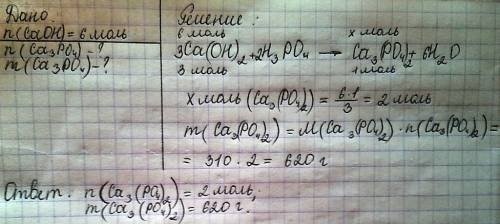 Дано:
n(CaOH)=6 моль
n(Ca₃PO₄)-?
m(Ca₃PO₄)-?
Решение:
6 моль x моль
3Ca(OH)₂+2H₃PO₄ → Ca₃(PO₄)₂+6H₂O
3 моль 1 моль
x моль (Ca₃(PO₄)₂) = 6·1/3 = 2 моль
m(Ca₃(PO₄)₂) = M(Ca₃(PO₄)₂)·n(Ca₃(PO₄)₂)=
= 310 · 2 = 620 г
Ответ: n(Ca₃(PO₄)₂)= 2 моль;
m(Ca₃(PO₄)₂)= 620 г.